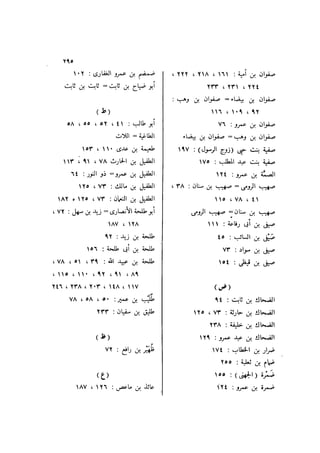 ٢٩٥
صفوان بن أمية : ١٦١ ، ٢١٨ ، ٢٢٢ ،
٢٢٤ ، ٢٣١ ، ٢٣٣
صفوان بن بيضاء = صفوان بن وهب :
٩٢ ، ١٠٩ ، ١١٦
صفوان بن عمرو : ٧٦
صفوان بن وهب = صفوان بن بيضاء
صفية بنت حيى ( زوج الرسول ) : ١٩٧
صفية بنت عبد المطلب : ١٧٥
الصمة بن عمرو : ١٢٤
صهيب الرومى = صهيب بن سنان : ٣٨ ،
٤١ ، ٧٨ ، ١١٥
صهيب بن سنان = صهيب الرومى
صيفى بن أبى رفاعة : ١١١
صيفى بن السائب : ٤٥
صيفى بن سواد : ٧٣
صيفى بن قيظى : ١٥٤
( ض )
الضحاك بن ثابت : ٩٤
الضحاك بن حارثة : ٧٣ ، ١٢٥
الضحاك بن خليفة : ٢٣٨
الضحاك بن عبد عمرو : ١٢٩
ضرار بن الخطاب : ١٧٤
ضمام بن ثعلبة : ٢٥٥
ضمرة ( الجهنى ) : ١٥٥
ضمرة بن عمرو : ١٢٤
ضمضم بن عمرو الغفارى : ١٠٢
أبو ضياح بن ثابت = ثابت بن ثابت
( ط )
أبو طالب : ٤١ ، ٥٢ ، ٥٥ ، ٥٨
الطاغية = اللات
طعيمة بن عدى ١١٠ ، ١٥٣
الطفيل بن الحارث ٧٨ ، ٩١ ، ١١٣
الطفيل بن عمرو = ذو النور : ٦٤
الطفيل بن مالك : ٧٣ ، ١٢٥
الطفيل بن النعمان : ٧٣ ، ١٢٥ ، ١٨٢
أبو طلحة الأنصارى = زيد بن سهل : ٧٢ ،
١٢٨ ، ١٨٧
طلحة بن زيد : ٩٢
طلحة بن أبى طلحة : ١٥٦
طلحة بن عبيد الله : ٣٩ ، ٥١ ، ٧٨ ،
٨٩ ، ٩١ ، ٩٢ ، ١١٠ ، ١١٥ ،
١١٧ ، ١٤٨ ، ٢٠٣ ، ٢٣٨ ، ٢٤٦
طليب بن عمير : ٥٠ ، ٥٨ ، ٧٨
طليق بن سفيان : ٢٣٣
( ظ )
ظهير بن رافع : ٧٢
( ع )
عائذ بن ماعص : ١٢٦ ، ١٨٧